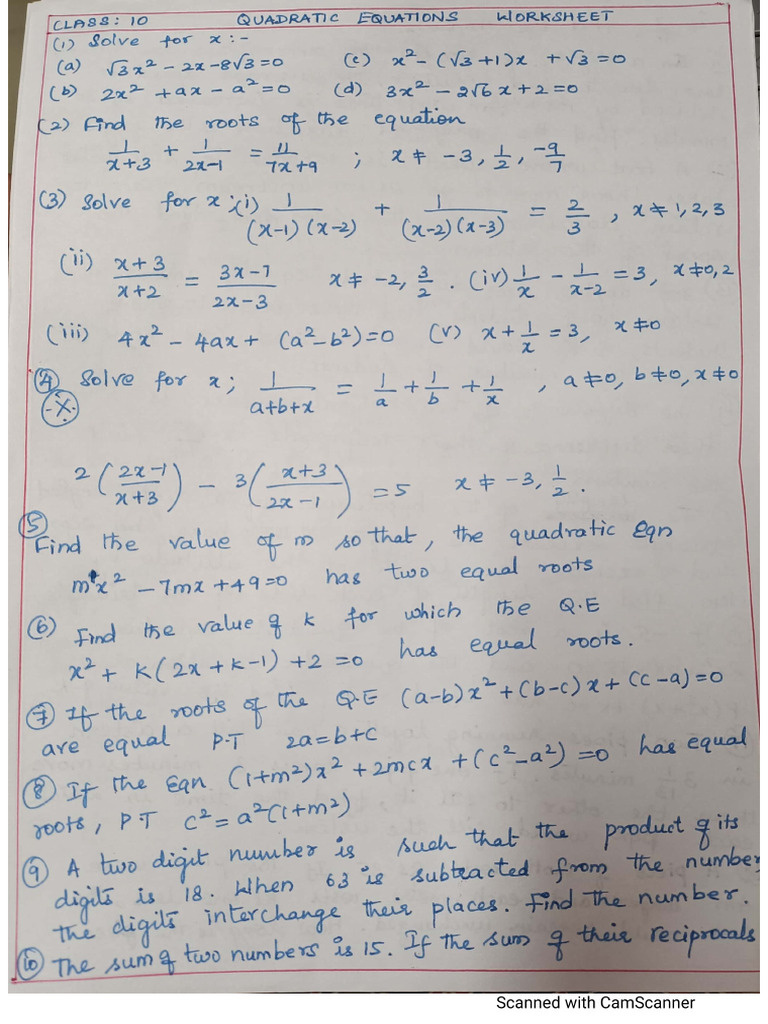 CLASS: 10 QUADRATIC EQUATIONS WORKSHEET
(1) Solve for x :-
(a) √3x² - 2x - 8√3 = 0 (c) x² - (√3 + 1)x + √3 = 0
(b) 2x² + ax - a² = 0 (d) 3x² - 2√6x + 2 = 0
(2) Find the roots of the equation
1/(x+3) + 1/(2x-1) = 11/(7x+9) ; x ≠ -3, 1/2, -9/7
(3) Solve for x ;(i) 1/((x-1)(x-2)) + 1/((x-2)(x-3)) = 2/3 , x ≠ 1,2,3
(ii) (x+3)/(x+2) = (3x-7)/(2x-3) x ≠ -2, 3/2 . (iv) 1/x - 1/(x-2) = 3, x ≠ 0,2
(iii) 4x² - 4ax + (a² - b²) = 0 (v) x + 1/x = 3, x ≠ 0
(4) Solve for x; 1/(a+b+x) = 1/a + 1/b + 1/x , a ≠ 0, b ≠ 0, x ≠ 0
2((2x-1)/(x+3)) - 3((x+3)/(2x-1)) = 5 x ≠ -3, 1/2.
(5)
Find the value of m so that, the quadratic Eqn
mx² - 7mx + 49 = 0 has two equal roots
(6) Find the value of k for which the Q.E
x² + k(2x + k - 1) + 2 = 0 has equal roots.
(7) If the roots of the Q.E (a-b)x² + (b-c)x + (c-a) = 0
are equal P.T 2a = b+c
(8) If the Eqn (1+m²)x² + 2mcx + (c² - a²) = 0 has equal
roots, P T c² = a²(1+m²)
(9) A two digit number is such that the product of its
digits is 18. When 63 is subtracted from the number
the digits interchange their places. Find the number.
(10) The sum of two numbers is 15. If the sum of their reciprocals
Scanned with CamScanner